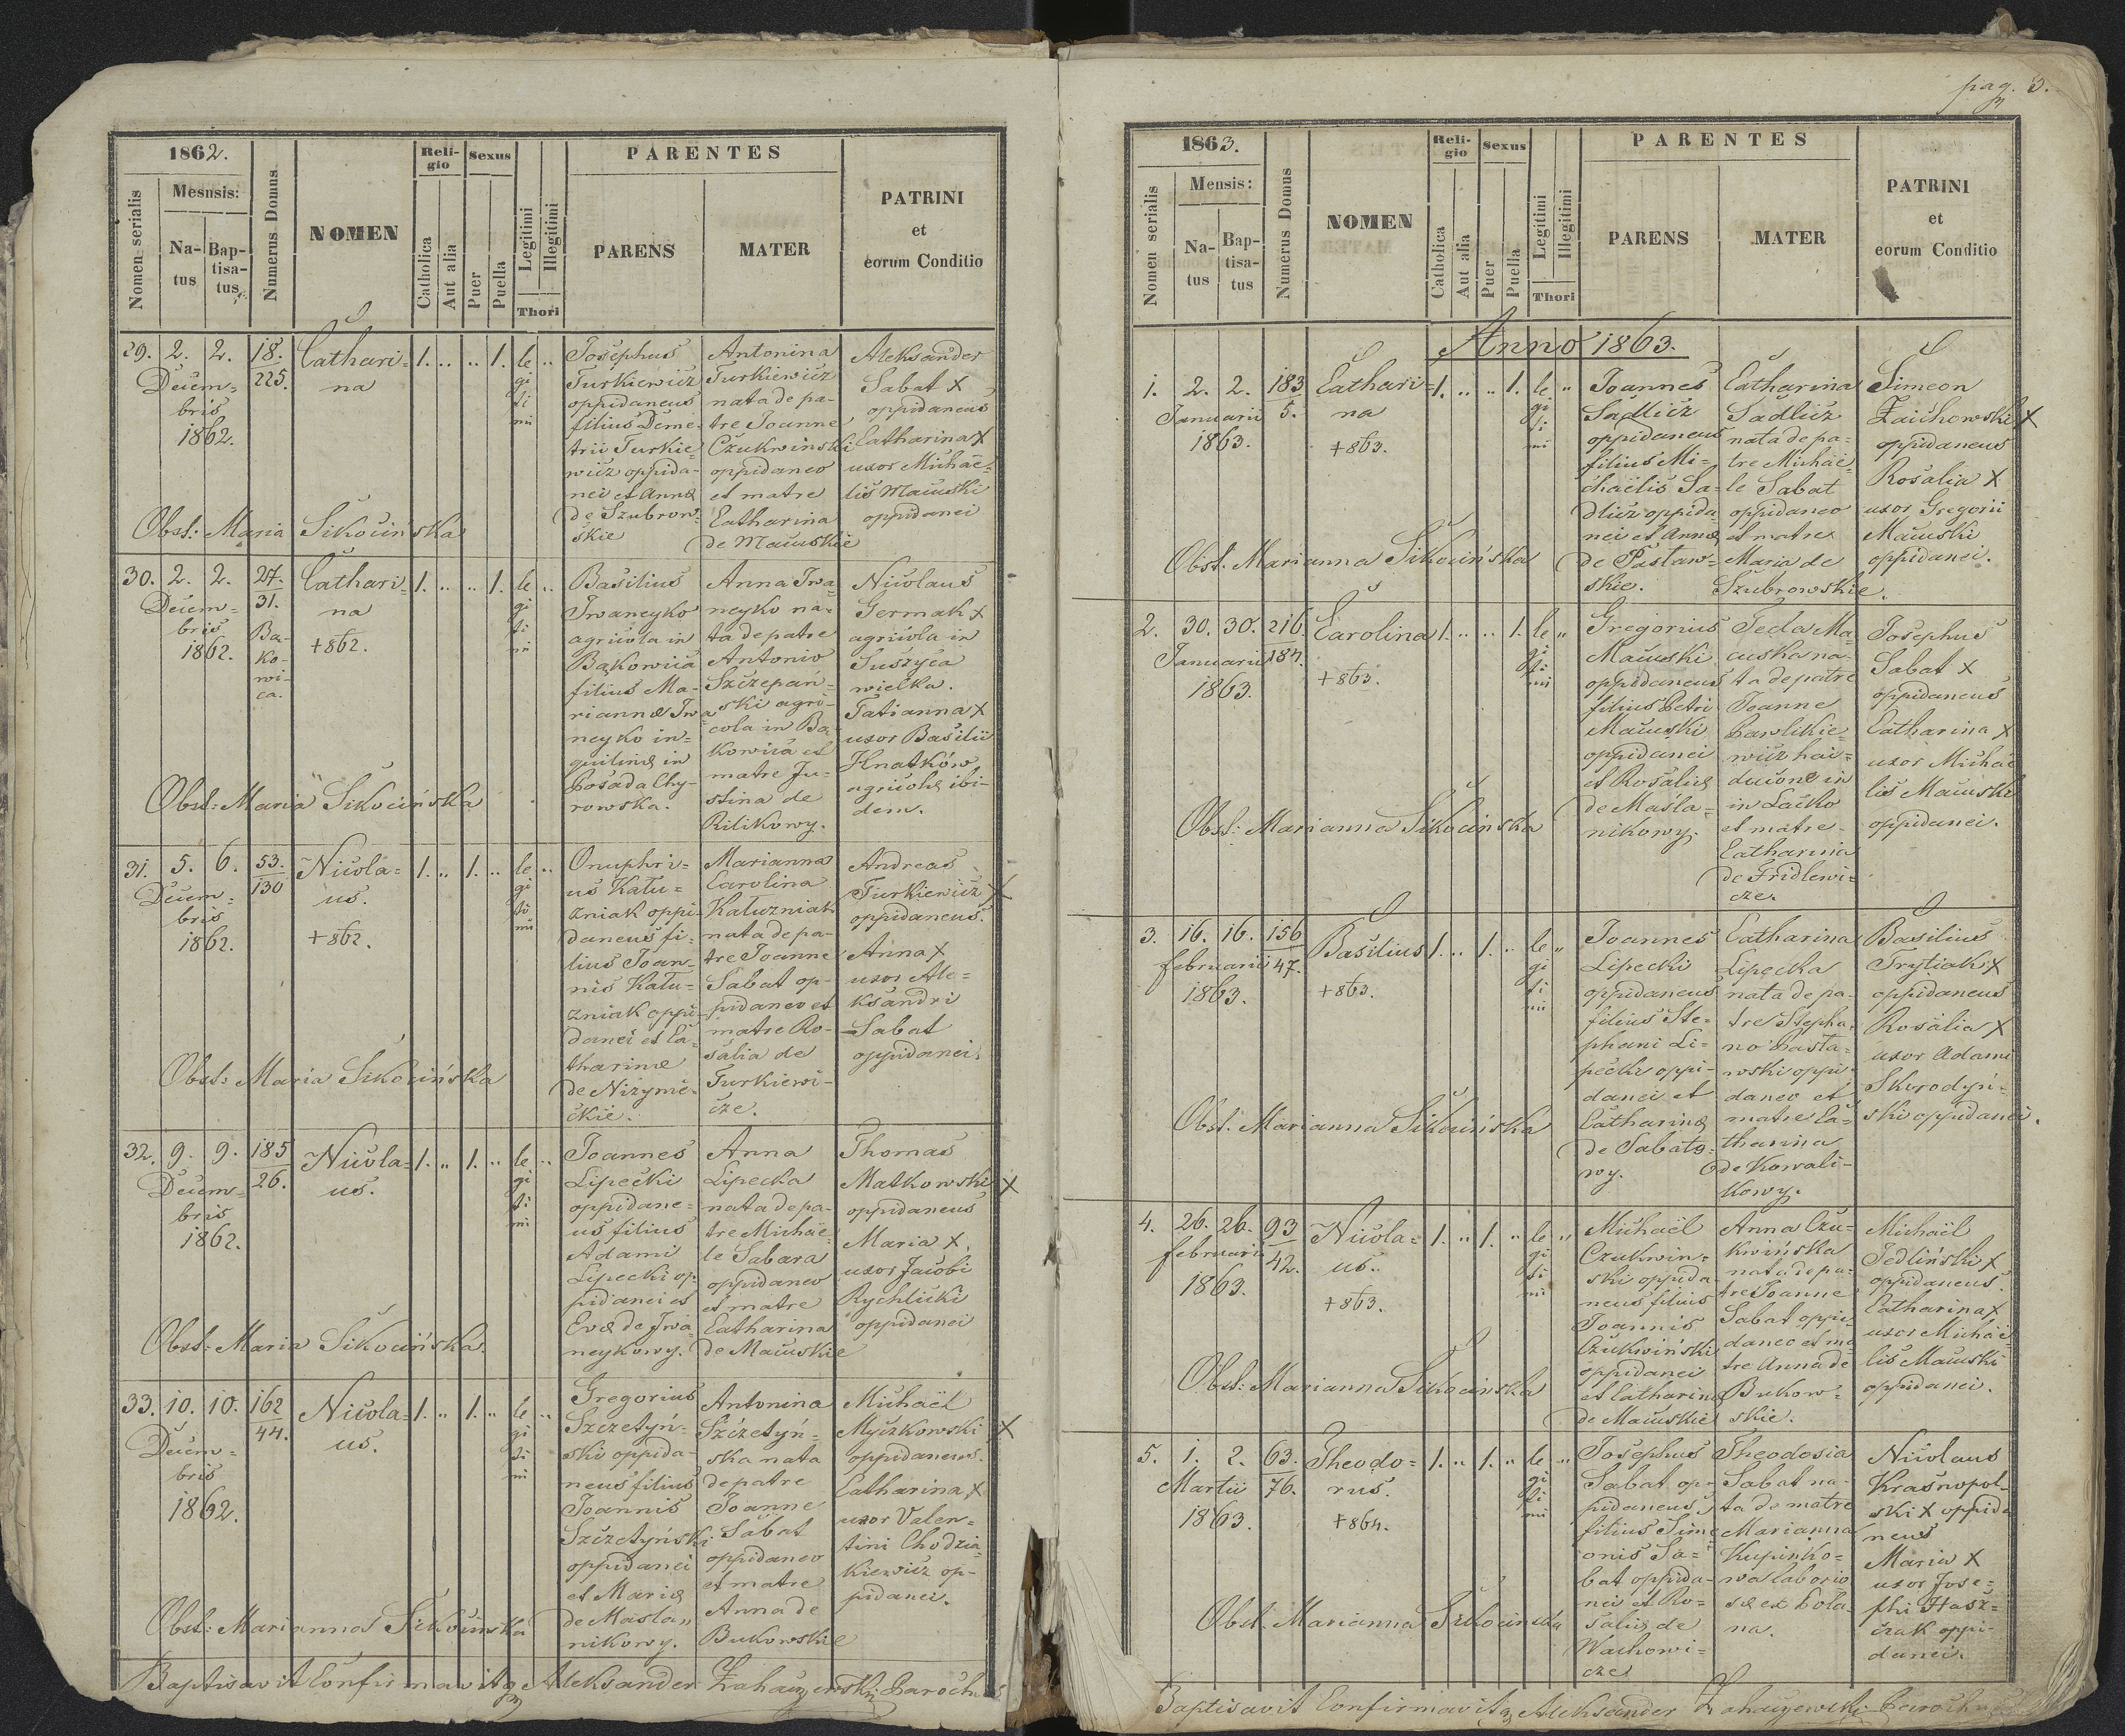 1862.
Mesnsis:
Nomen serialis
Na-
tus
Bap-
tisa-
tus
Numerus Domus
NOMEN
Reli-
gio
Catholica
Aut alia
Sexus
Puer
Puella
Legitimi
Illegitimi
Thori
PARENTES
PARENS
MATER
PATRINI
et
eorum Conditio
29. 2. 2.
Decem=
bris
1862.
18.
225.
Cathari=
na
1. .. .. 1. le ..
gi
ti
mi
Josephus
Turkiewicz
oppidaneus
filius Deme-
trii Turkie=
wicz oppida-
nei et Annæ
de Szubrow-
skie
Antonina
Turkiewicz
nata de pa-
tre Joanne
Czukwinski
oppidaneo
et matre
Catharina
de Macuskie
Aleksander
Sabat X
oppidaneus
Catharina X
uxor Michaë=
lis Macuski
oppidanei
Obst: Maria Sikocińska
30. 2. 2.
Decem=
bris
1862.
27.
31.
Ba-
ko-
wi-
ca.
Cathari=
na
+862.
1. .. .. 1. le ..
gi
ti
mi
Basilius
Iwaneyko
agricola in
Bąkowica
filius Ma-
riannæ Iwa
neyko in=
quilinæ in
Posada Chy-
rowska.
Anna Iwa
neyko na-
ta de patre
Antonio
Szczepań-
ski agri-
cola in Ba-
kowica et
matre Ju-
stina de
Rilikowy.
Nicolaus
Germak X
agricola in
Suszyca
wielka.
Tatianna X
uxor Basilii
Hnatków
agricolæ ibi-
dem.
Obst: Maria Sikocińska
31. 5. 6.
Decem=
bris
1862.
53.
130
Nicola=
us.
+862.
1. .. 1. .. le ..
gi
ti
mi
Onuphri=
us Kału=
zniak oppi-
daneus fi-
lius Joan-
nis Kału=
zniak oppi-
danei et Ca-
tharinæ
de Nizyme-
ckie.
Marianna
Carolina
Kałuzniak
nata de pa-
tre Joanne
Sabat op-
pidaneo et
matre Ro-
salia de
Turkiewi-
cze.
Andreas
Turkiewicz X
oppidaneus.
Anna X
uxor Ale=
ksandri
Sabat
oppidanei.
Obst: Maria Sikocińska
32. 9. 9.
Decem=
bris
1862.
185
26.
Nicola=
us.
1. .. 1. .. le ..
gi
ti
mi
Joannes
Lipecki
oppidane=
us filius
Adami
Lipecki op-
pidanei et
Evæ de Iwa-
neykowy.
Anna
Lipecka
nata de pa-
tre Michaë-
le Sabara
oppidaneo
et matre
Catharina
de Macuskie
Thomas
Matkowski X
oppidaneus
Maria X,
uxor Jacobi
Rychlicki
oppidanei
Obst: Maria Sikocińska.
33. 10. 10.
Decem=
bris
1862.
162
44.
Nicola=
us.
1. .. 1. .. le ..
gi
ti
mi
Gregorius
Szczetyń-
ski oppida-
neus filius
Joannis
Szczetyński
oppidanei
et Mariæ
de Masla=
nikowy.
Antonina
Szczetyń=
ska nata
de patre
Joanne
Sabat
oppidaneo
et matre
Anna de
Bukowskie
Michaël
Myczkowski X
oppidaneus.
Catharina X
uxor Valen=
tini Chodzia
kiewicz op-
pidanei.
Obst: Marianna Sikocińska
Baptisavit Confirmavitq Aleksander Parochus
pag. 3.
1863.
Mensis:
Nomen serialis
Na-
tus
Bap-
tisa-
tus
Numerus Domus
NOMEN
Reli-
gio
Catholica
Aut alia
Sexus
Puer
Puella
Legitimi
Illegitimi
Thori
PARENTES
PARENS
MATER
PATRINI
et
eorum Conditio
Anno 1863.
1. 2. 2.
Januarii
1863.
183
5.
Cathari=
na
+863.
1. .. .. 1. le ..
gi
ti
mi
Joannes
Sadlicz
oppidaneus
filius Mi=
chaëlis Sa=
dlicz oppida
nei et Annæ
de Pastaw=
skie.
Catharina
Sadlicz
nata de pa=
tre Michaë=
le Sabat
oppidaneo
et matre
Maria de
Szubrowskie.
Simeon
Zaichowski X
oppidaneus
Rosalia X
uxor Gregorii
Macuski
oppidanei.
Obst. Marianna Sikocińska
2. 30. 30.
Januarii
1863.
216.
184.
Carolina
+863.
1. .. .. 1. le ..
gi
ti
mi
Gregorius
Macuski
oppidaneus
filius Petri
Macuski
oppidanei
et Rosaliæ
de Masla-
nikowy.
Teda Ma-
cuska na-
ta de patre
Joanne
Pawlikie=
wicz hai=
ducone in
in Lacko
et matre
Catharina
de Fridlewi=
cze.
Josephus
Sabat X
oppidaneus
Catharina X
uxor Michaë
lis Macuski
oppidanei.
Obst: Marianna Sikocinska
3. 16. 16.
februarii
1863.
156
47.
Basilius
+863.
1. .. 1. .. le ..
gi
ti
mi
Joannes
Lipecki
oppidaneus
filius Ste=
phani Li=
pecki oppi-
danei et
Catharinæ
de Sabato=
wy.
Catharina
Lipecka
nata de pa-
tre Stepha-
no Pasta=
wski oppi-
daneo et
matre Ca-
tharina
de Kowali-
kowy.
Basilius
Trytiak X
oppidaneus
Rosalia X
uxor Adami
Skorodyń-
ski oppidanei.
Obst. Marianna Sikocińska
4. 26. 26.
februarii
1863.
93
42.
Nicola=
us.
+863.
1. .. 1. .. le ..
gi
ti
mi
Michaël
Czukwin=
ski oppida
neus filius
Joannis
Czukwiński
oppidanei
et Catharinæ
de Macuskie
Anna Czu=
kwińska
nata de pa-
tre Joanne
Sabat oppi-
daneo et ma
tre Anna de
Bukow=
skie.
Michaël
Jedliński X
oppidaneus.
Catharina X
uxor Michaë
lis Macuski
oppidanei.
Obst: Marianna Sikocinska
5. 1. 2.
Martii
1863.
63.
76.
Theodo=
rus.
+864.
1. .. 1. .. le ..
gi
ti
mi
Josephus
Sabat op-
pidaneus,
filius Sime
onis Sa=
bat oppida-
nei et Ro=
saliæ de
Wachowi=
cze
Theodosia
Sabat na-
ta de matre
Marianna
Kupinko=
wa laborio
sæ ex Pola=
na.
Nicolaus
Krasnopol-
ski X oppida
neus
Maria X
uxor Jose=
phi Hasz=
czak oppi-
danei.
Obst. Marianna Sikocinska
Baptisavit Confirmavitq Aleksander Parochus